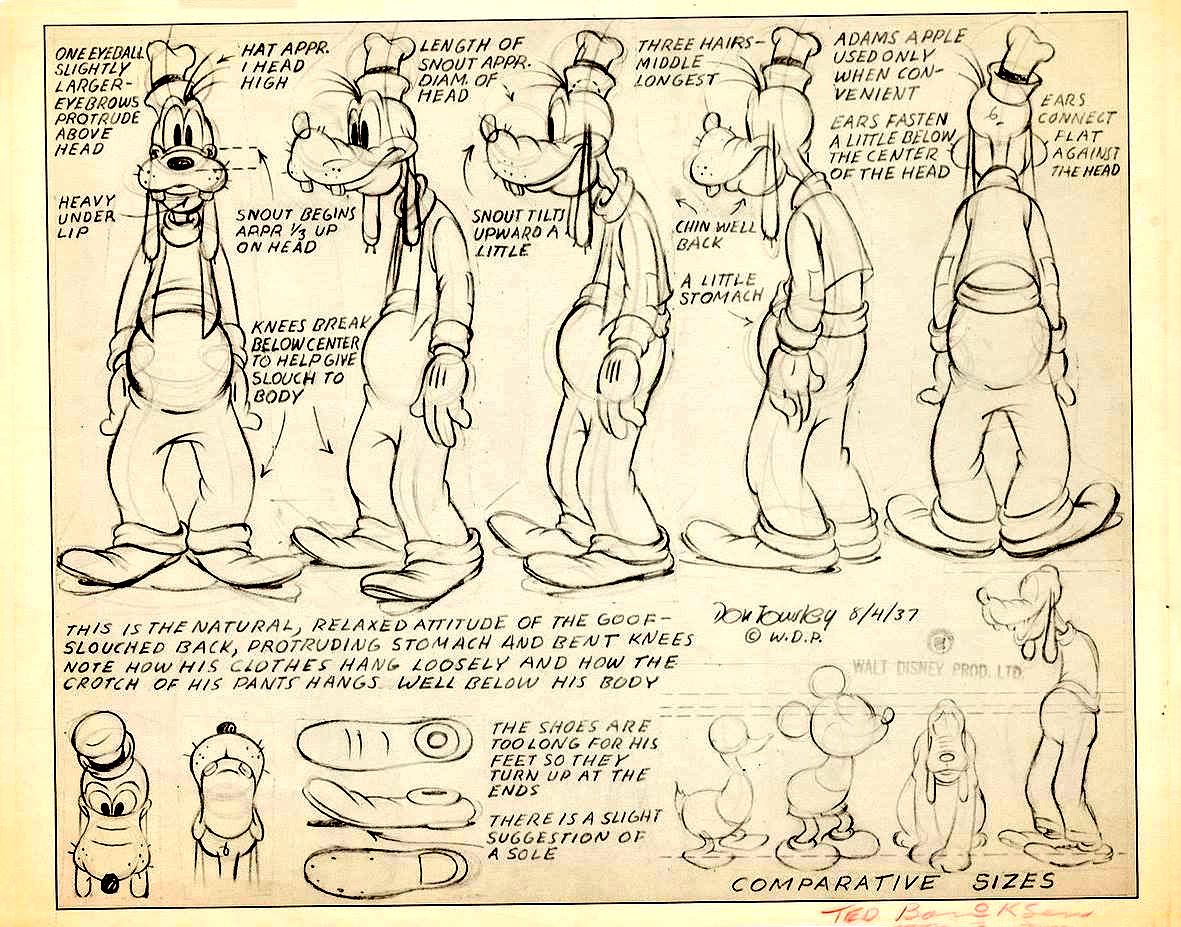 ONE EYEBALL
SLIGHTLY
LARGER-
EYEBROWS
PROTRUDE
ABOVE
HEAD
HAT APPR.
1 HEAD
HIGH
LENGTH OF
SNOUT APPR.
DIAM. OF
HEAD
THREE HAIRS-
MIDDLE
LONGEST
ADAMS APPLE
USED ONLY
WHEN CON-
VENIENT
EARS FASTEN
A LITTLE BELOW
THE CENTER
OF THE HEAD
EARS
CONNECT
FLAT
AGAINST
THE HEAD
HEAVY
UNDER
LIP
SNOUT BEGINS
APPR 1/3 UP
ON HEAD
SNOUT TILTS
UPWARD A
LITTLE
CHIN WELL
BACK
A LITTLE
STOMACH
KNEES BREAK
BELOW CENTER
TO HELP GIVE
SLOUCH TO
BODY
THIS IS THE NATURAL, RELAXED ATTITUDE OF THE GOOF-
SLOUCHED BACK, PROTRUDING STOMACH AND BENT KNEES
NOTE HOW HIS CLOTHES HANG LOOSELY AND HOW THE
CROTCH OF HIS PANTS HANGS WELL BELOW HIS BODY
Don Towsley 8/4/37
© W.D.P.
WALT DISNEY PROD. LTD.
THE SHOES ARE
TOO LONG FOR HIS
FEET SO THEY
TURN UP AT THE
ENDS
THERE IS A SLIGHT
SUGGESTION OF
A SOLE
COMPARATIVE SIZES
TED